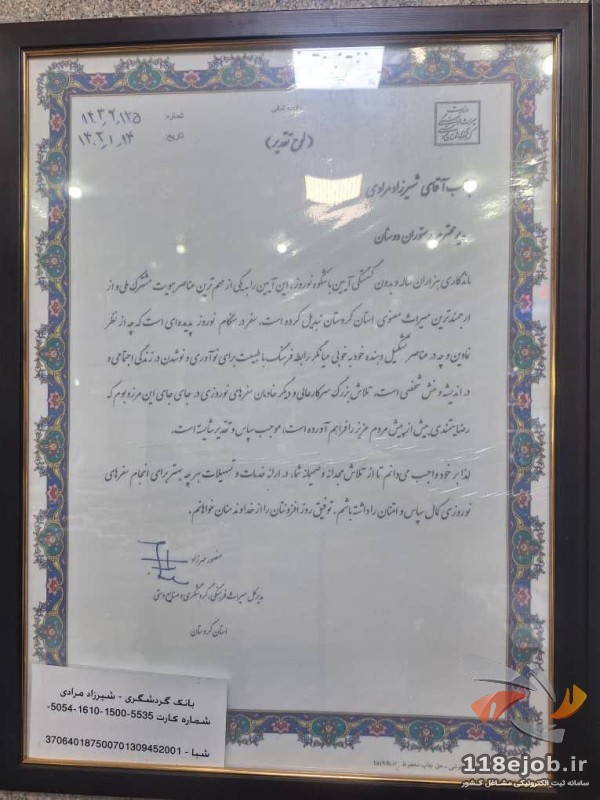 باسمه تعالی
شماره: ۱۲۳۶٫۱۲۵
تاریخ: ۱۴۰۳٫۱٫۱۴
(لوح تقدیر)
جناب آقای شیرزاد مرادی
مدیر محترم رستوران دوستان
ماندگاری هزاران ساله و بدون گسستگی آیین باشکوه نوروز، این آیین را به یکی از مهم ترین عناصر هویت مشترک ملی و از
ارجمندترین میراث معنوی استان کردستان تبدیل کرده است، سفر در هنگام نوروز پدیده‌ای است که چه از نظر
نمادین و چه در عناصر تشکیل دهنده خود به خوبی میانگر رابطه فرهنگ با طبیعت برای نوآوری و نوشدن در زندگی اجتماعی و
در اندیشه و منش شخصی است. تلاش بزرگ سرکار عالی و دیگر خادمان سفرهای نوروزی در جای جای این مرز و بوم که
رضایتمندی بیش از پیش مردم عزیز را فراهم آورده است، موجب سپاس و تقدیر شایسته است.
لذا بر خود واجب می‌دانم تا از تلاش مجدانه و صمیمانه شما، در ارائه خدمات و تسهیلات هر چه بهتر برای انجام سفرهای
نوروزی کمال سپاس و امتنان را داشته باشم. توفیق روز افزونتان را از خداوند منان خواهانم.
منصور مهرزاد
مدیرکل میراث فرهنگی، گردشگری و صنایع دستی
استان کردستان
بانک گردشگری - شیرزاد مرادی
شماره کارت 5535-1500-1610-5054-
شبا - 370640187500701309452001
118ejob.ir
سامانه ثبت الکترونیکی مشاغل کشور